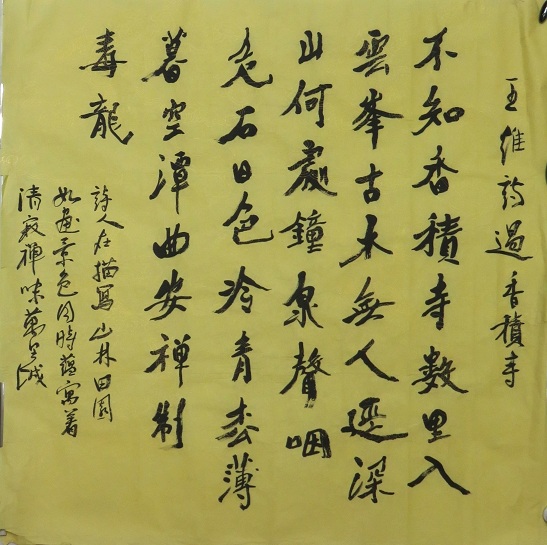 王維詩過香積寺
不知香積寺數里入
雲峯古木無人逕深
山何處鐘泉聲咽
危石日色冷青枩薄
暮空潭曲安禪制
毒龍
詩人在描寫山林田園
如畫景色同時蘊寓着
清寂禪味萬誠